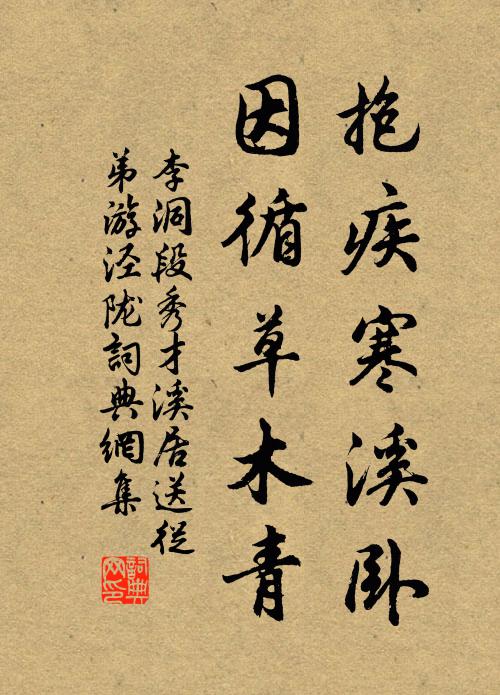 抱疾寒溪卧
因循草木青
李洞段秀才溪居送從
弟游泾陇詞典網集
詞典網印